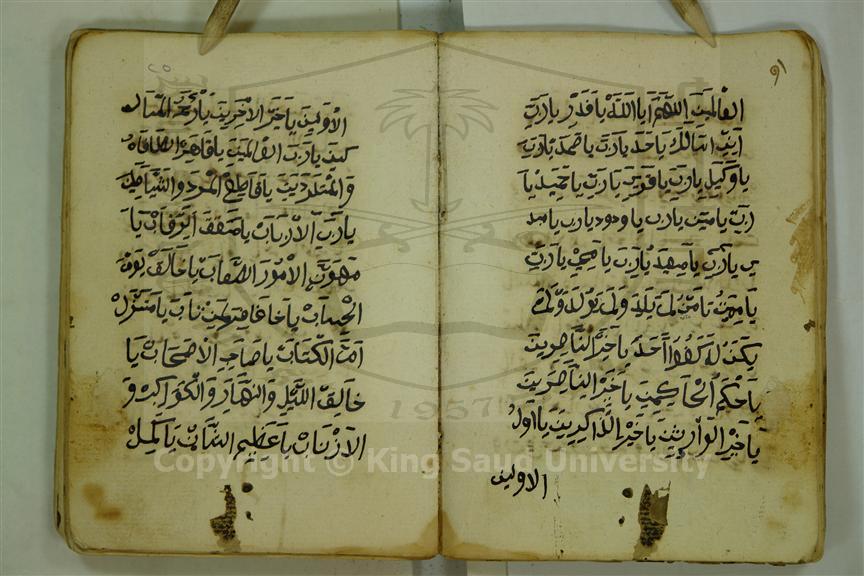 العالمين اللهم يا الله يا قدير يا رب
اني اسالك يا احد يا رب يا صمد يا رب
يا وكيل يا رب يا قوي يا رب يا حميد يا
رب يا متين يا رب يا ودود يا رب يا مبد
ي يا رب يا معيد يا رب يا محي يا رب
يا مميت يا من لم يلد ولم يولد ولم
يكن له كفوا احد يا خير الناصرين
يا احكم الحاكمين يا خير الناصرين
يا خير الوارثين يا خير الذاكرين يا اول
الاولين
الاولين يا خير الاخرين يا
يا رب العالمين يا قاهر
والمتمردين يا قاطع المرد والشياطين
يا رب الارباب يا يا
مهون الامور الصعاب يا خالق يوم
الحساب يا يا منزل
الكتاب يا صاحب الاصحاب يا
خالق الليل والنهار والكواكب و
يا عظيم يا
Copyright © King Saud University
1957